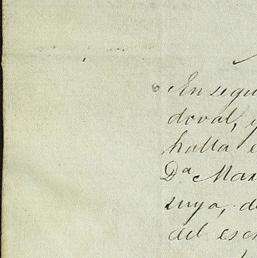 En segui
doval, y
halla e
Dª Mar
suya, de
del esc